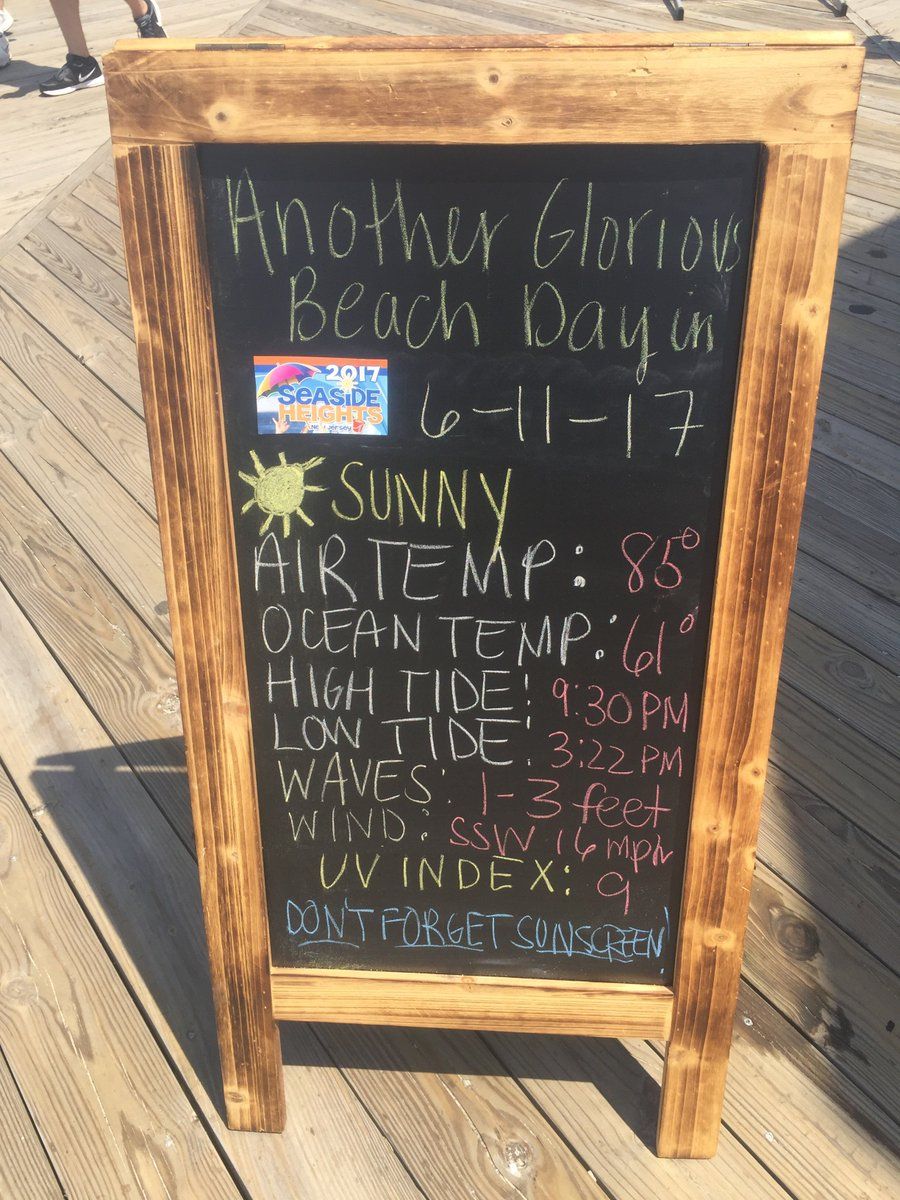 Another Glorious
Beach Day in
2017
SEASIDE
HEIGHTS
New Jersey
6-11-17
SUNNY
AIR TEMP: 85°
OCEAN TEMP: 61°
HIGH TIDE: 9:30 PM
LOW TIDE: 3:22 PM
WAVES: 1-3 feet
WIND: SSW 16 mph
UV INDEX: 9
DON'T FORGET SUNSCREEN!